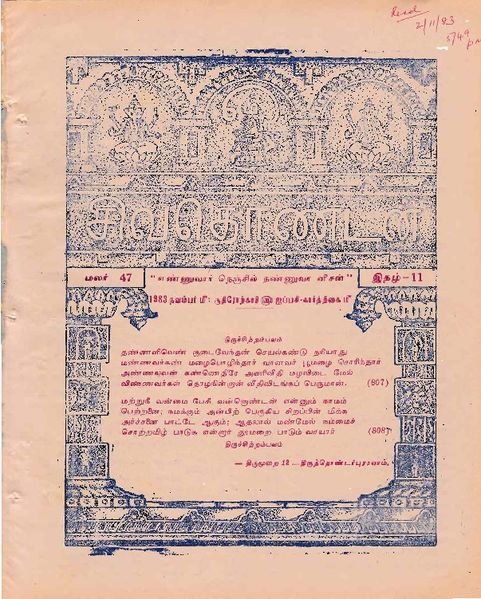 Read
2/11/83
சிவதொண்டன்
மலர் 47
"எண்ணுவார் நெஞ்சில் நண்ணுவா னீசன்"
இதழ்-11
1983 நவம்பர் மீ
ஐப்பசி-கார்த்திகை மீ
திருச்சிற்றம்பலம்
தண்ணளிவெண் குடைவேந்தன் செயல்கண்டு தரியாது
மண்ணவர்கண் மழைபொழிந்தார் வானவர் பூமழை சொரிந்தார்
அண்ணலவன் கண்ணெதிரே அணிவீதி மழவிடை மேல்
விண்ணவர்கள் தொழநின்றான் வீதிவிடங்கப் பெருமான். (807)
மற்றுநீ வன்மை பேசி வன்றொண்டன் என்னும் நாமம்
பெற்றனை; நமக்கும் அன்பிற் பெருகிய சிறப்பின் மிக்க
அர்ச்சனை பாட்டே ஆகும்; ஆதலால் மண்மேல் நம்மைச்
சொற்றமிழ் பாடுக என்றார் தூமறை பாடும் வாயார் (808)
திருச்சிற்றம்பலம்
— திருமுறை 12 — திருத்தொண்டர்புராணம்.